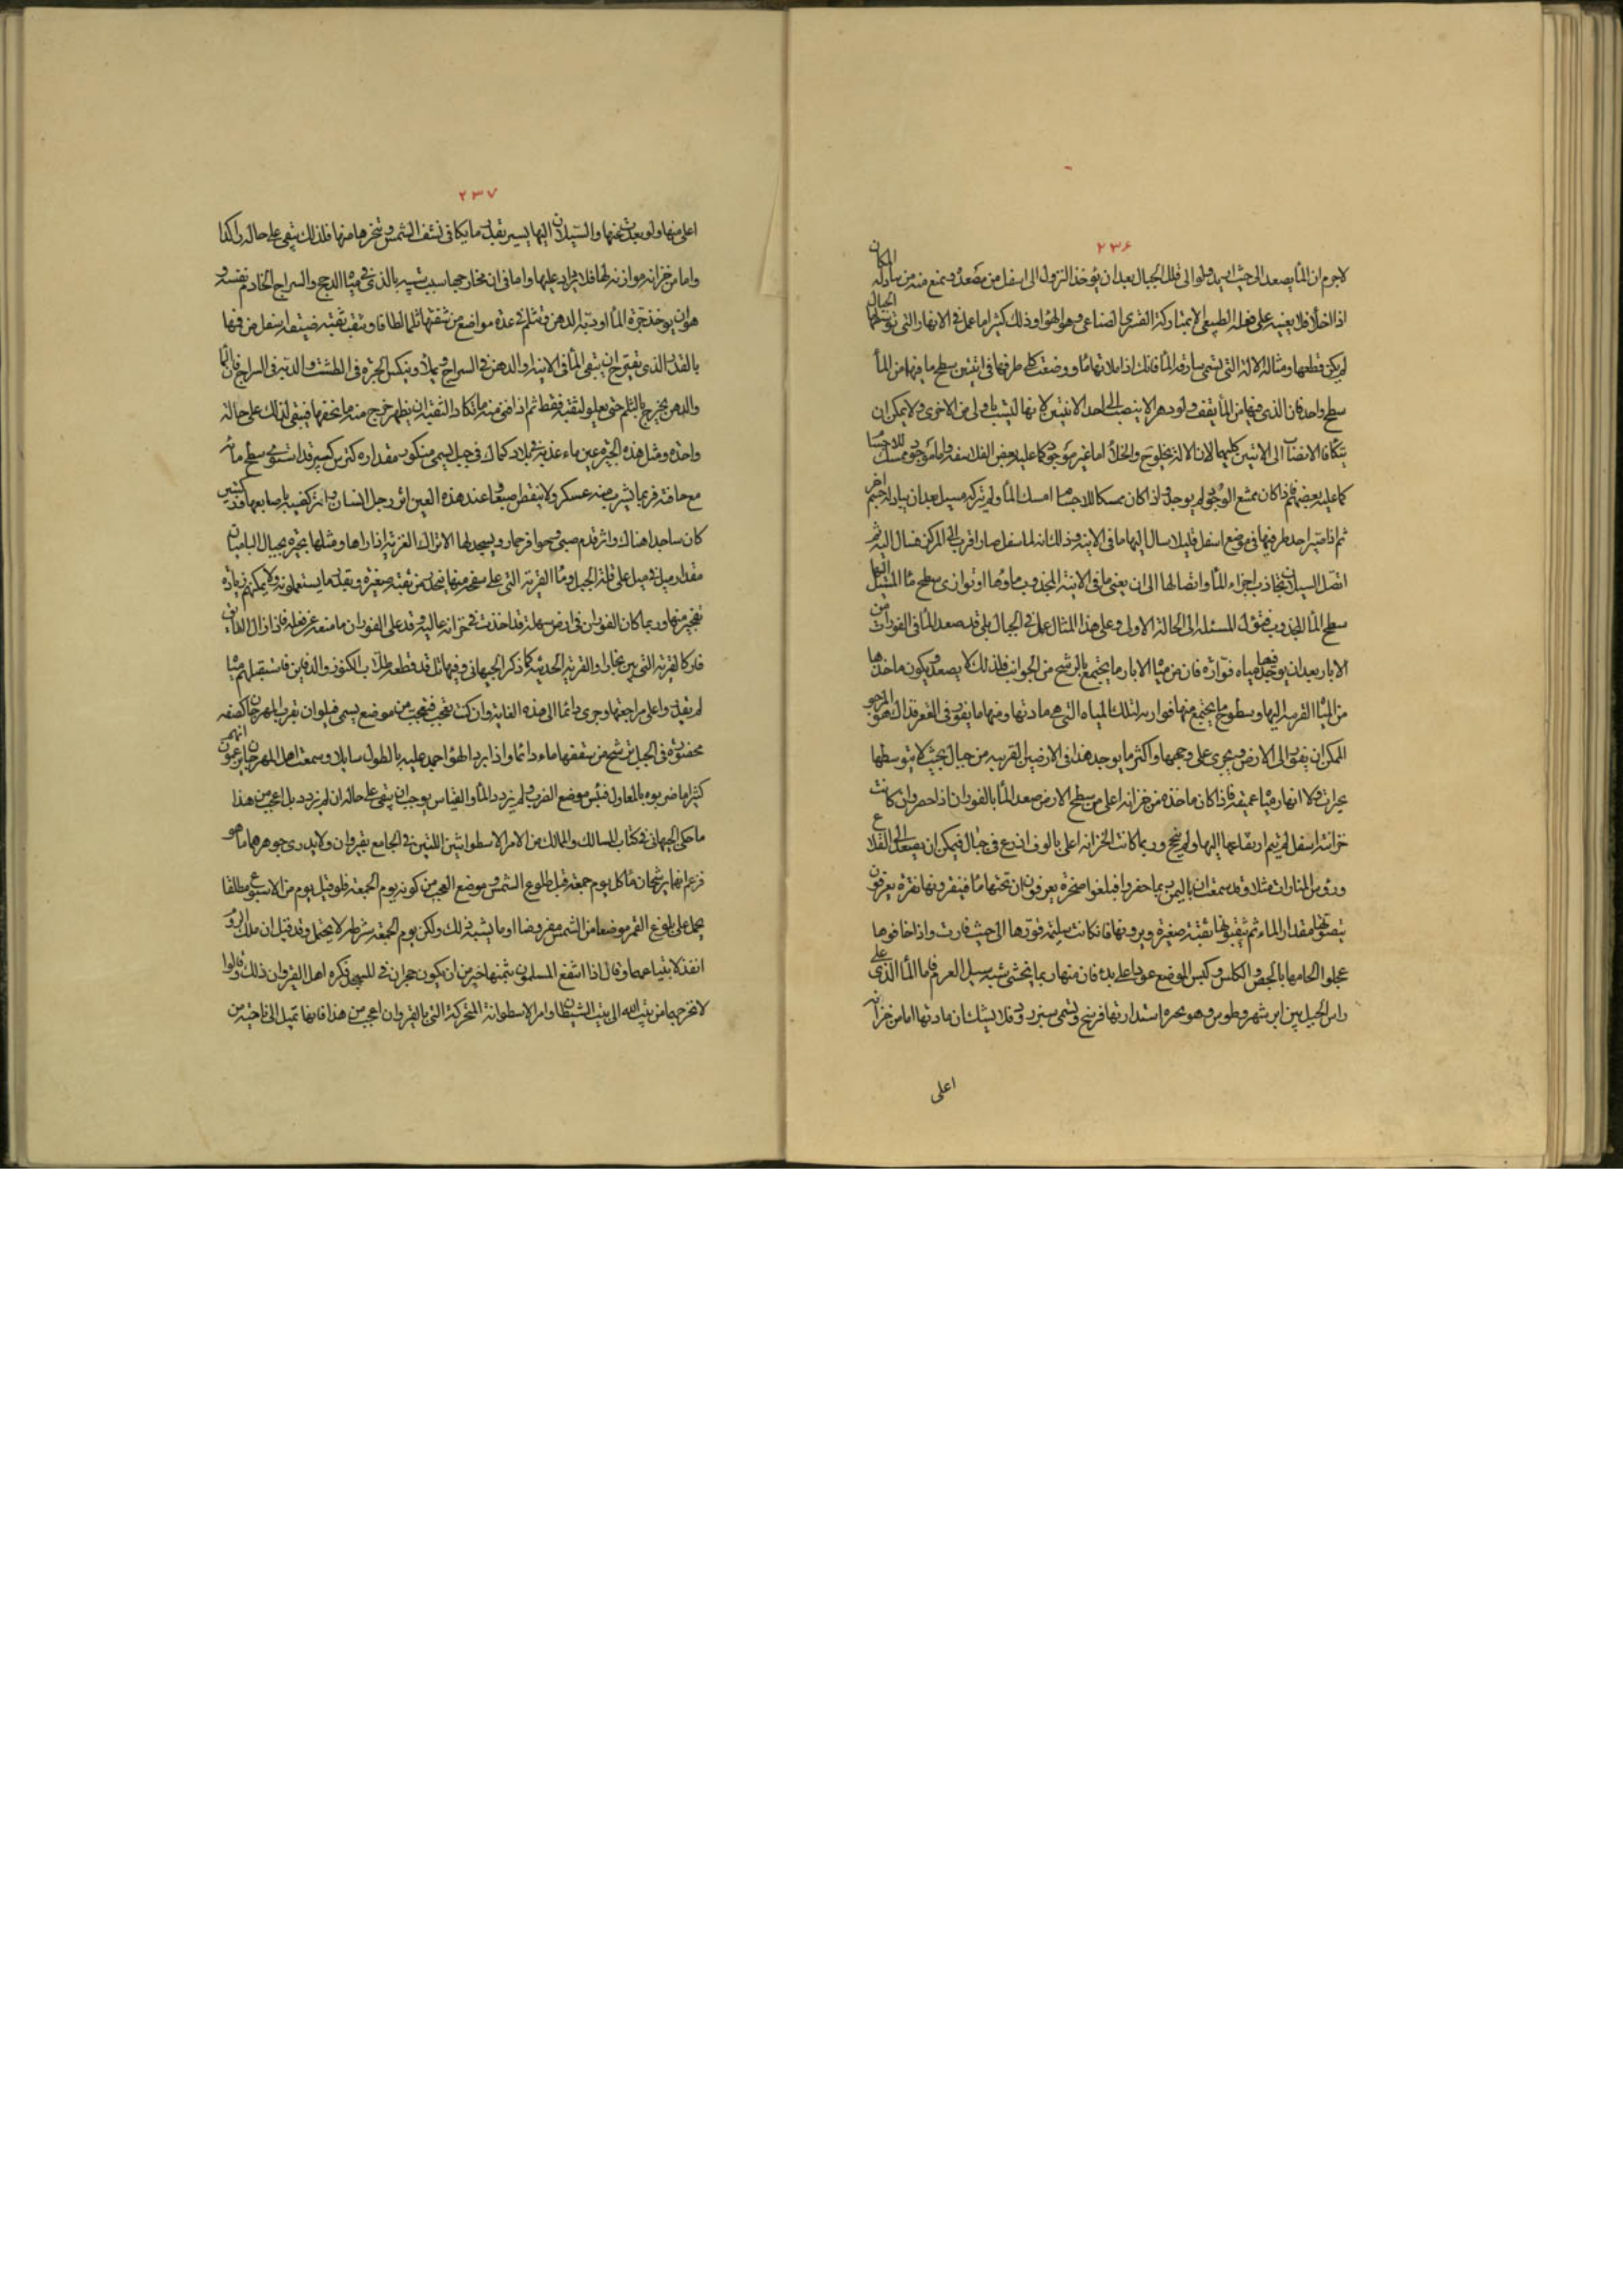 ٢٣۶
لا جرم ان الماء يصعد الى حيث اريد ولو الى قلل الجبال بعد ان يؤخذ النزول الى اسفل من مصعده ويمنع منه من يبادله المكان
اذا اخلاه فلا يعينه على فعله الطبيعى الا بمشاركة القسرى الصناعى وهو الهواء وذلك كثيرا ما عمل فى الانهار التى توسطها الجبال
لم يمكن قطعها ومثاله الآلة التى تسمى سارقة الماء فانك اذا ملأتها ماء ووضعت كلى طرفيها فى انيتين سطح ما فيهما من الماء
سطح واحد فان الذى فيها من الماء يقف ولو دهرا لا ينصب الى احد الانيتين لانها ليست باولى من الاخرى ولا يمكن ان
يتكافا الانصباب الى الانيتين كليهما لان الالة تخلو ح والخلاء اما غير موجود كما عليه بعض الفلاسفة واما موجود ممسك للاجسام
كما عليه بعضهم فاذا كان ممتنع الوجود لم يوجد واذا كان ممسكا للاجسام امسك الماء ولم يتركه يسيل بعد ان يبادله جسم اخر
ثم اذا صير احد طرفيها فى موضع اسفل قليلا سال اليها ما فى الانية وذلك انه لما سفل صار اقرب الى المركز فسال اليه ثم
اتصل السيلان بتجاذب اجزاء الماء واتصالها الى ان يفنى ما فى الانية المجذوب ماؤها او توازى سطح ماء المنثال اليها
سطح الماء المجذوب فتؤل المسئلة الى الحالة الاولى وعلى هذا المثال عمل فى الجبال بلى قد يصعد الماء فى الفورات من
الابار بعد ان يوجد فيها مياه فوارة فان من مياه الابار ما يجتمع بالرشح من الجوانب فلذلك لا يصعد ويكون ماخذها
من المياه القريبة اليها وسطوح ما يجتمع منها موازية لتلك المياه التى هى مادتها ومنها ما يفور فى القعر فذاك هو المرجو
الممكن ان يفور الى الارض ويجرى على وجهها واكثر ما يوجد هذا فى الارضين القريبة من جبال بحيث لا يتوسطها
بحيرات ولا انهار مياه عميقة فاذا كان ماخذه من خزانة اعلى من سطح الارض صعد الماء بالفوران اذا حصر وان كانت
خزانته اسفل لم يتم ارتفاعها اليها ولم ينجح وربما كانت الخزانة اعلى بالوف اذرع فى جبال فيمكن ان يصعد الى القلاع
ورؤس المنارات مثلا وقد سمعت ان باليمن ربما حفروا فبلغوا صخرة يعرفون ان تحتها ماء فينقرونها نقرة يعرفون
بصوتها مقدار الماء ثم يثقبونها ثقبة صغيرة ويرونها فان كانت سليمة فوروها الى حيث فارت واذا خافوها
عجلوا الحامها بالجص والكلس وكبس الموضع عودا على بدء فان منها ربما يخشى شبه سيل العرم فاما الماء الذى على
راس الجبل بين ابرشهر وطوس وهو بحيرة استدارتها فرسخ وتسمى سبزرود فلا يشك ان مادتها اما من خزانة
اعلى
٢٣٧
اعلى منها ولو بعدت عنها والسيلان اليها يسير بقدر ما يكافى نشف الشمس وتبخرها منها فلذلك تبقى على حالة راكدا
واما من خزانة موازنة لها فلا يزيد عليها واما فى ان مخارجها سبب شبيه بالذى فى مياه الدهج والسراج الخادم نفسه و
هو ان يؤخذ جرة الماء او دبة الدهن ويثلم فى عدة مواضع من شفتها ثلما لطافا ويثقب ثقبة ضيقة اسفل من فمها
بالقدر الذى تقترح ان يبقى الماء فى الانية والدهن فى السراج ويملأ وينكس الجرة فى الطشت والدبة فى السراج فان الماء
والدهن يخرج بالثلم حتى يعلو الثقبة فقط ثم اذا فنى منه ما تكاد الثقبة ان يظهر خرج منه ما يخفيها فيبقى لذلك على حالة
واحدة ومثل هذه البحيرة عين ماء عذبة فى بلاد كيماك فى جبل يسمى منكور مقداره كترس كبير قد استوى سطح مائه
مع حافته فربما يشرب منه عسكر ولا ينقص اصبعا وعند هذه العين اثر رجل انسان واثر كفيه باصابعها وركبتيه كمن
كان ساجدا هناك واثر قدم صبى وحوافر حمار ويسجد لها الاتراك الغزية اذا راوها ومثلها بحيرة بجبال الباميان
مقدار ميل فى ميل على قلة الجبل وماء القرية التى على سفح منها ينجلب من ثقبة صغيرة وبقدر ما يستعملونه ولا يمكنهم زيادة
تفجير منها وربما كان الفوران فى ارض سهلة قد اخذت فى خزانة عالية وقد على الفوران مانعة عن فعله فاذا زال العائق
فار كالقرية التى بين بخارا والقرية الحديثة كما ذكر الجيهانى وفيها تل قد قطعه طلاب الكنوز والدفاين فاستقبلهم مياه
لم يقدروا على مراجعتها وجرى دائما الى هذه الغاية وان كنت تعجب فتعجب من موضع يسمى فيلوان بقرب المهرجان كصفة
محفورة فى الجبل يترشح من سقفها ماء دائما واذا برد الهواء جمد عليه بالطول سايلا وسمعت اهل المهرجان يزعمون انهم
كثيرا ما ضربوه بالمعاول فيبس موضع الضرب ولم يزدد الماء والقياس يوجب ان يبقى على حالة ان لم يزدد بل اعجب من هذا
ما حكى الجيهانى فى كتاب المسالك والممالك من الامر الاسطوانتين اللتين فى الجامع بقيروان ولا يدرى جوهرهما ما هو
فزعم انهما يرشحان ماء كل يوم جمعة قبل طلوع الشمس وموضع العجب من كونه يوم الجمعة فلو قيل يوم من الاسبوع مطلقا
يحمل على بلوغ القمر موضعا من الشمس مفروضا او ما يشبه ذلك ولكن يوم الجمعة بشرطه لا يحتمل وقد قيل ان ملك الروم
انفذ لابتياعهما وقال اذا انتفع المسلمون بثمنها خير من ان يكون حجران فى المسجد فكره اهل القيروان ذلك وقالوا
لا نخرجهما من بيت الله الى بيت الشيطان وامر الاسطوانة المتحركة التى بالقيروان اعجب من هذا فانها تميل الى ناحية من